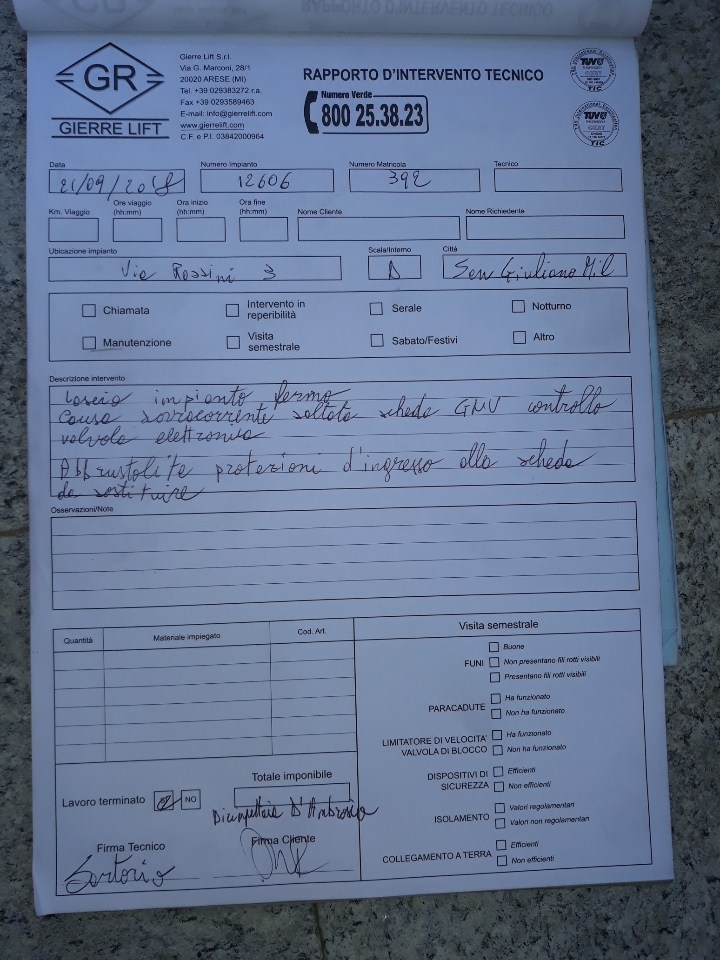 GR
GIERRE LIFT
Gierre Lift S.r.l.
Via G. Marconi, 28/1
20020 ARESE (MI)
Tel. +39 029383272 r.a.
Fax +39 0293589463
E-mail: info@gierrelift.com
www.gierrelift.com
C.F. e P.I. 03842000964
RAPPORTO D'INTERVENTO TECNICO
Numero Verde
800 25.38.23
TUV
TIC
TUV
TIC
Data Numero Impianto Numero Matricola Tecnico
21/09/2018 12606 392
Km. Viaggio Ore viaggio (hh:mm) Ora inizio (hh:mm) Ora fine (hh:mm) Nome Cliente Nome Richiedente
Ubicazione impianto Scala/Interno Città
Via Rossini 3 D San Giuliano Mil
Chiamata Intervento in reperibilità Serale Notturno
Manutenzione Visita semestrale Sabato/Festivi Altro
Descrizione intervento
Lascio impianto fermo
Causa sovracorrente saltata scheda GMV controllo
valvola elettronica
Abbrustolite protezioni d'ingresso alla scheda
da sostituire
Osservazioni/Note
Quantità Materiale impiegato Cod. Art.
Visita semestrale
FUNI
Buone
Non presentano fili rotti visibili
Presentano fili rotti visibili
PARACADUTE
Ha funzionato
Non ha funzionato
LIMITATORE DI VELOCITA'
VALVOLA DI BLOCCO
Ha funzionato
Non ha funzionato
DISPOSITIVI DI
SICUREZZA
Efficienti
Non efficienti
ISOLAMENTO
Valori regolamentari
Valori non regolamentari
COLLEGAMENTO A TERRA
Efficienti
Non efficienti
Totale imponibile
Lavoro terminato NO
D'Ambrosio
Firma Tecnico Firma Cliente
Sartorio